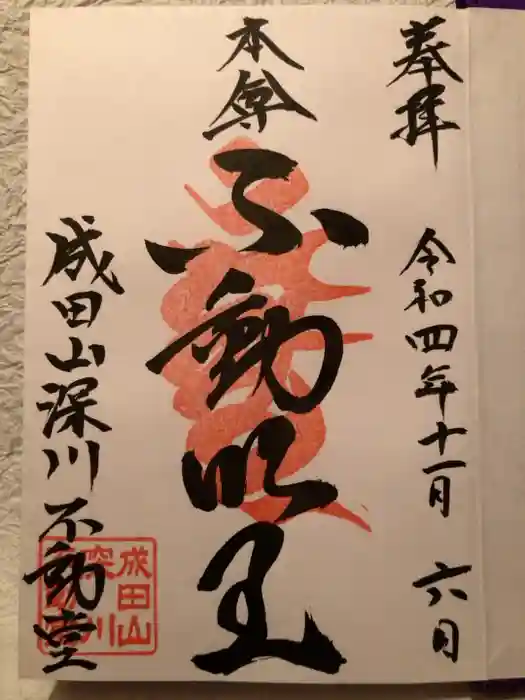 奉拝
令和四年十一月六日
本尊
不動明王
成田山深川不動堂
成田山
深川